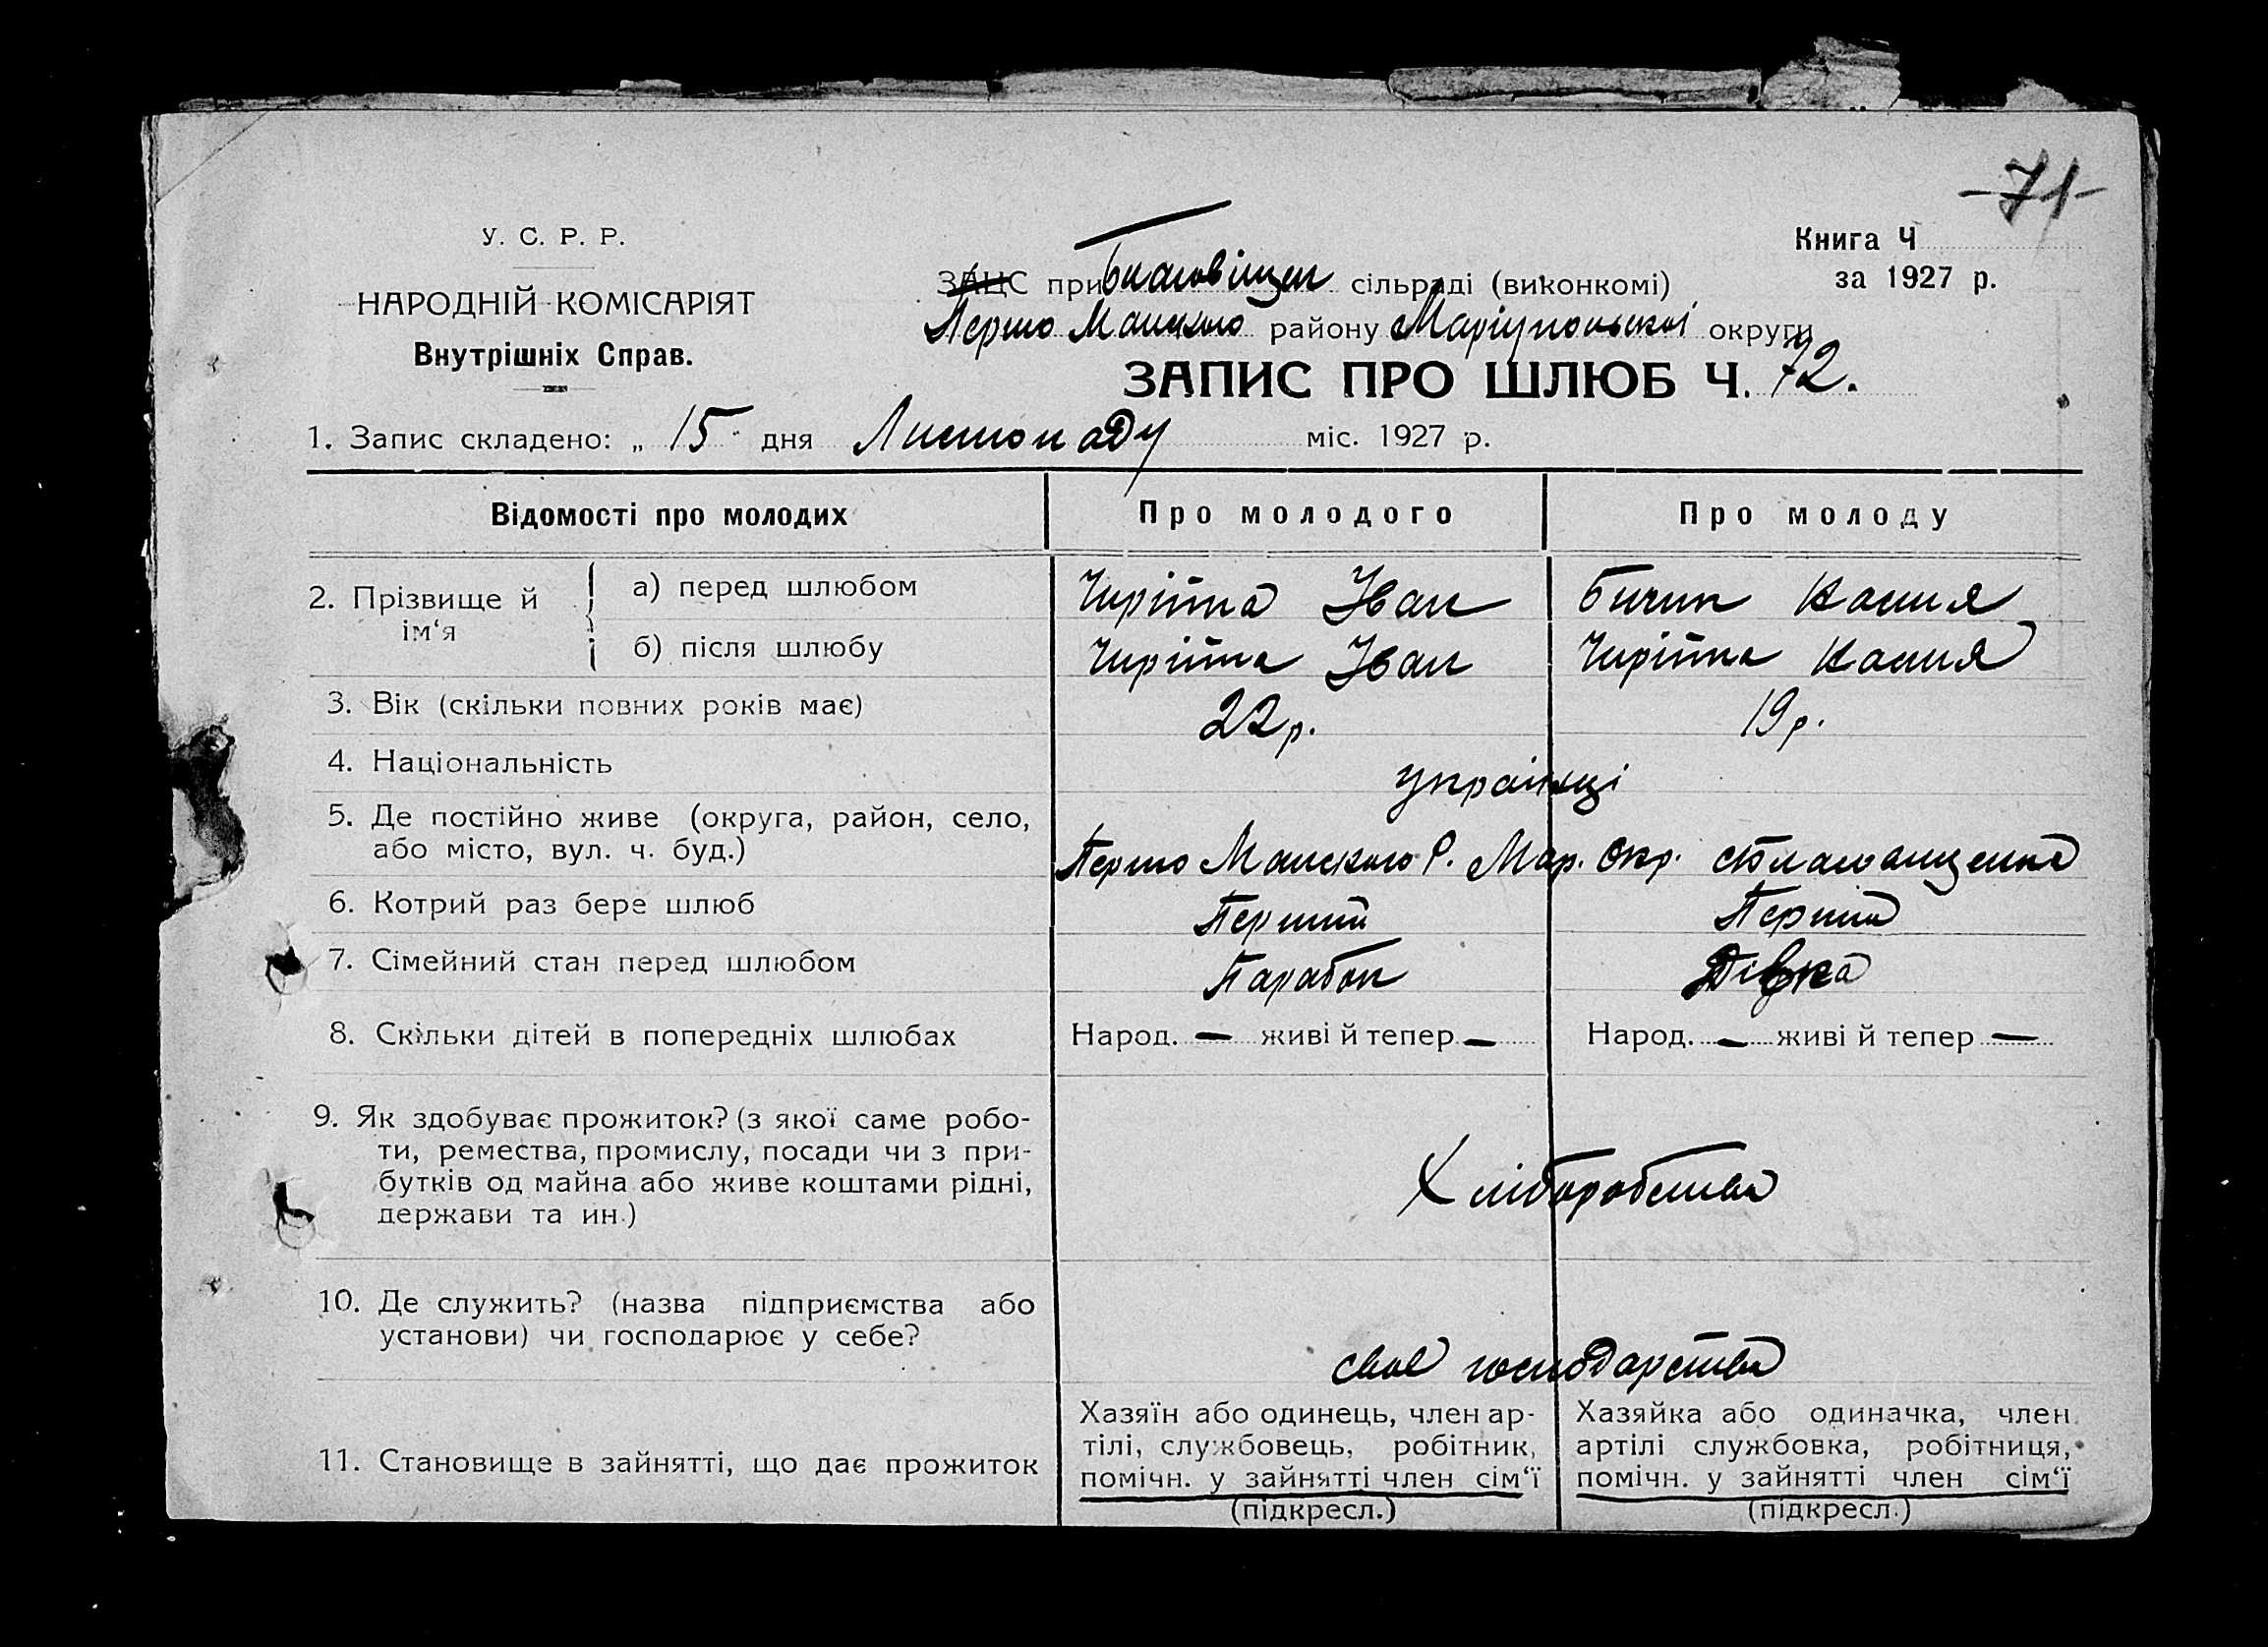 -71-
У. С. Р. Р.
НАРОДНІЙ КОМІСАРІЯТ
Внутрішніх Справ.
Книга Ч
за 1927 р.
ЗАЦС при Благовіщен сільраді (виконкомі)
Першо Майського району Маріупольської округи
ЗАПИС ПРО ШЛЮБ Ч. 72.
1. Запис складено: „ 15 " дня Листопаду міс. 1927 р.
Відомості про молодих Про молодого Про молоду
2. Прізвище й ім‘я
а) перед шлюбом Чирітка Іван Бичик Ксенія
б) після шлюбу Чирітка Іван Чирітка Ксенія
3. Вік (скільки повних років має) 22 р. 19 р.
4. Національність українці
5. Де постійно живе (округа, район, село,
або місто, вул. ч. буд.) Першо Майського Р. Мар. Окр.
6. Котрий раз бере шлюб Перший Перший
7. Сімейний стан перед шлюбом Парабок Дівка
8. Скільки дітей в попередніх шлюбах Народ. — живі й тепер — Народ. — живі й тепер —
9. Як здобуває прожиток? (з якої саме робо-
ти, ремества, промислу, посади чи з при-
бутків од майна або живе коштами рідні,
держави та ин.)
Хліборобства
10. Де служить? (назва підприємства або
установи) чи господарює у себе?
своє господарство
11. Становище в зайнятті, що дає прожиток
Хазяїн або одинець, член ар-
тілі, службовець, робітник,
помічн. у зайнятті член сім‘ї
(підкресл.)
Хазяйка або одиначка, член
артілі службовка, робітниця,
помічн. у зайнятті член сім‘ї
(підкресл.)